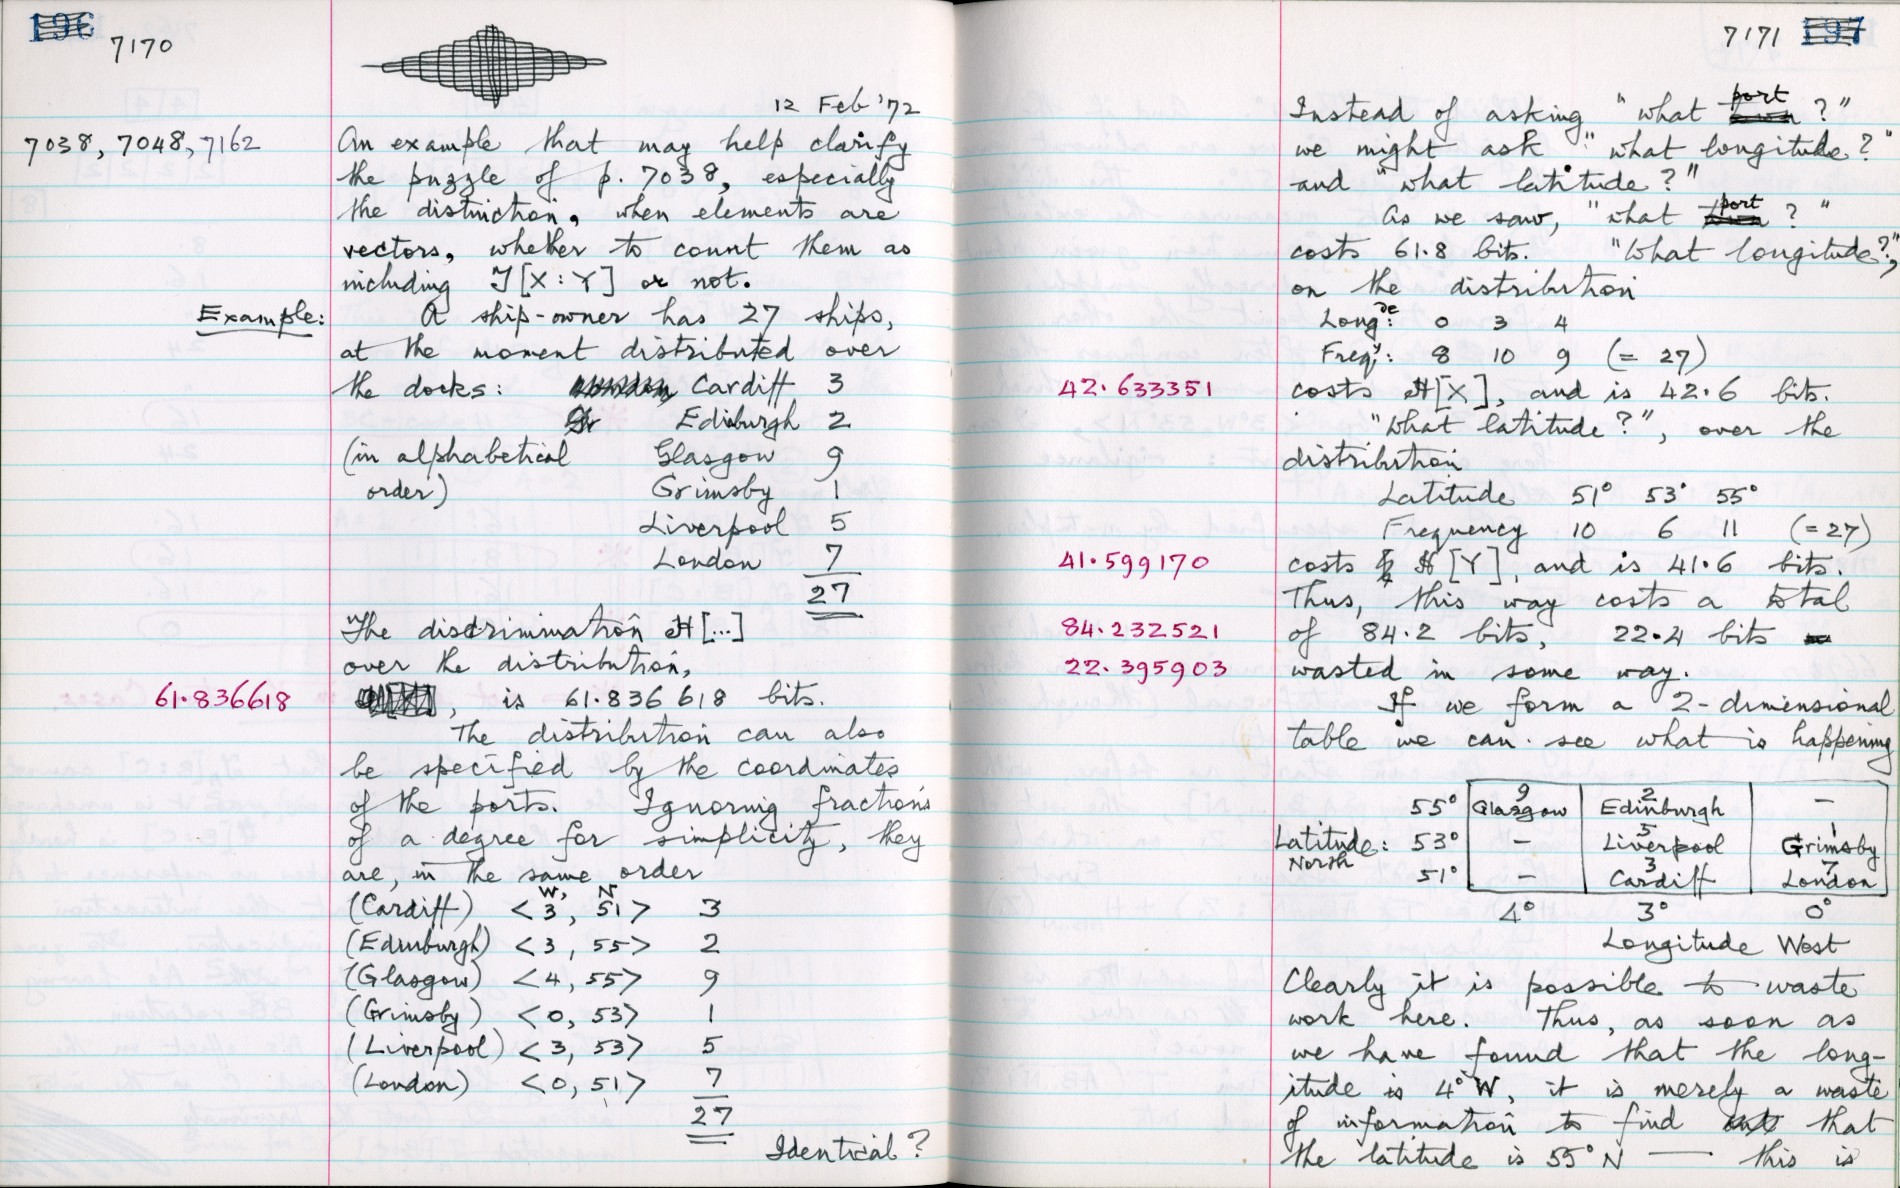 196
7170
12 Feb '72
7038, 7048, 7162
An example that may help clarify
the puzzle of p. 7038, especially
the distinction, when elements are
vectors, whether to count them as
including J[X:Y] or not.
Example:
A ship-owner has 27 ships,
at the moment distributed over
the docks: Cardiff 3
Edinburgh 2
(in alphabetical Glasgow 9
order) Grimsby 1
Liverpool 5
London 7
27
The discrimination H[...]
over the distribution,
61.836618
, is 61.836 618 bits.
The distribution can also
be specified by the coordinates
of the ports. Ignoring fractions
of a degree for simplicity, they
are, in the same order
W, N
(Cardiff) <3, 51> 3
(Edinburgh) <3, 55> 2
(Glasgow) <4, 55> 9
(Grimsby) <0, 53> 1
(Liverpool) <3, 53> 5
(London) <0, 51> 7
27
Identical?
7171 197
Instead of asking "what port ?"
we might ask "what longitude?"
and "what latitude?"
As we saw, "what port ? "
costs 61.8 bits. "What longitude?",
on the distribution
Longde: 0 3 4
Freqy: 8 10 9 (= 27)
42.633351
costs H[X], and is 42.6 bits.
"What latitude?", over the
distribution
Latitude 51° 53° 55°
Frequency 10 6 11 (=27)
41.599170
costs H[Y], and is 41.6 bits.
Thus, this way costs a total
84.232521
of 84.2 bits, 22.4 bits
22.395903
wasted in some way.
If we form a 2-dimensional
table we can see what is happening
9 2
55° Glasgow Edinburgh –
5 1
Latitude: 53° – Liverpool Grimsby
North
3 7
51° – Cardiff London
4° 3° 0°
Longitude West
Clearly it is possible to waste
work here. Thus, as soon as
we have found that the long-
itude is 4° W, it is merely a waste
of information to find out that
the latitude is 55° N — this is